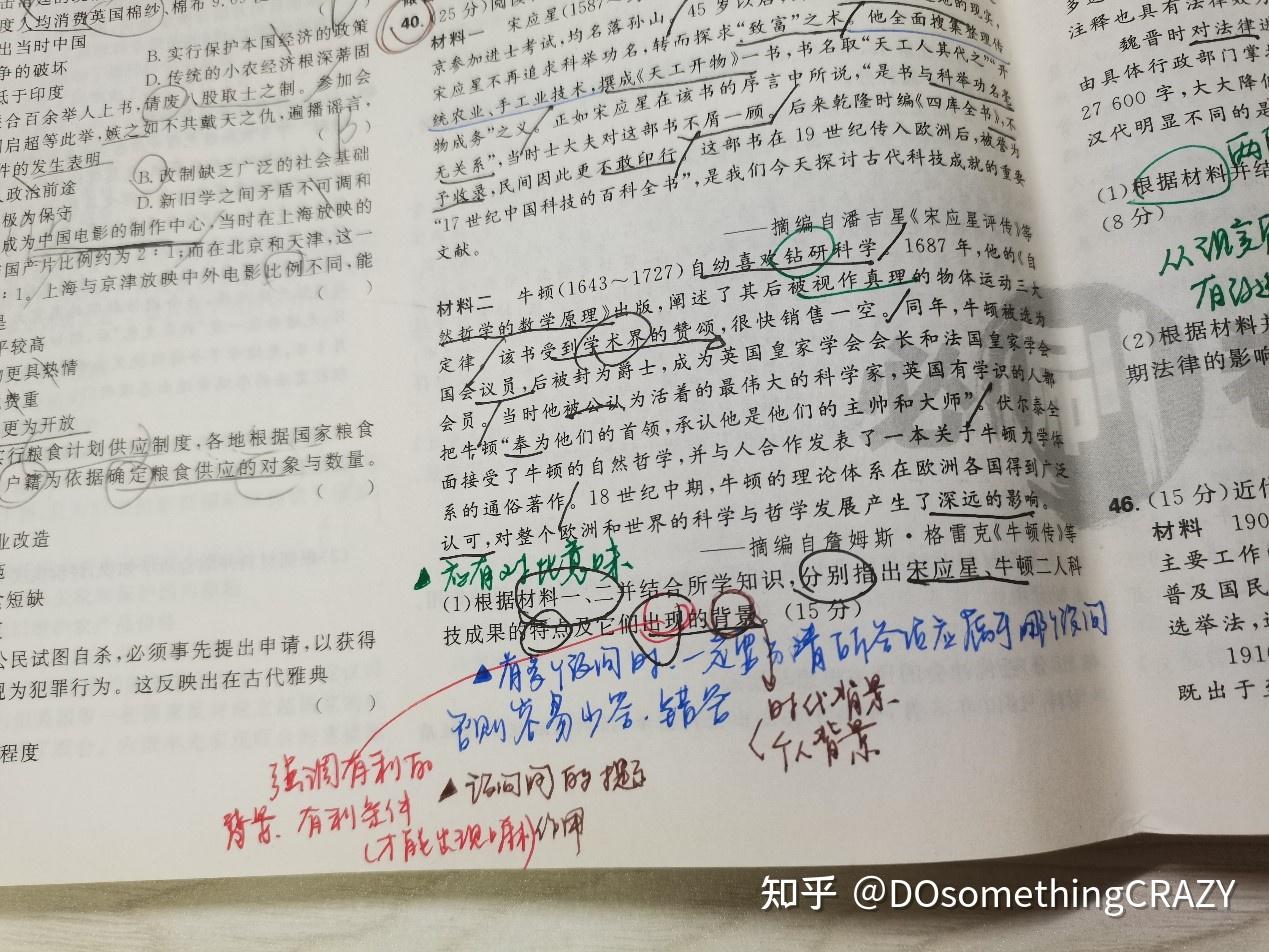 度人均消费英国棉纱、棉布
出当时中国
B. 实行保护本国经济的政策
争的破坏
D. 传统的小农经济根深蒂固
低于印度
合百余举人上书,请废八股取士之制。参加会
启超等此举,嫉之如不共戴天之仇,遍播谣言,
件的发生表明
政治前途
B. 改制缺乏广泛的社会基础
极为保守
D. 新旧学之间矛盾不可调和
成为中国电影的制作中心,当时在上海放映的
国产片比例约为2:1;而在北京和天津,这一
:1。上海与京津放映中外电影比例不同,能
是
平较高
更具热情
费重
更为开放
行粮食计划供应制度,各地根据国家粮食
户籍为依据确定粮食供应的对象与数量。
业改造
短缺
公民试图自杀,必须事先提出申请,以获得
视为犯罪行为。这反映出在古代雅典
程度
40.
(25分)阅读
材料一 宋应星(1587~
45岁以后,
的现实,
京参加进士考试,均名落孙山,
宋应星不再追求科举功名,转而探求“致富”之术。他全面搜集整理传
统农业、手工业技术,撰成《天工开物》一书,书名取“天工人其代之”“开
物成务”之义。正如宋应星在该书的序言中所说,“是书与科举功名毫
无关系”,当时士大夫对这部书不屑一顾,后来乾隆时编《四库全书》,不
予收录,民间因此更不敢印行。这部书在19世纪传入欧洲后,被誉为
“17世纪中国科技的百科全书”,是我们今天探讨古代科技成就的重要
文献。
——摘编自潘吉星《宋应星评传》等
材料二 牛顿(1643~1727)自幼喜欢钻研科学。1687年,他的《自
然哲学的数学原理》出版,阐述了其后被视作真理的物体运动三大
定律。该书受到学术界的赞颂,很快销售一空。同年,牛顿被选为
国会议员,后被封为爵士,成为英国皇家学会会长和法国皇家学会
会员。当时他被公认为活着的最伟大的科学家,英国有学识的人都
把牛顿“奉为他们的首领,承认他是他们的主帅和大师”。伏尔泰全
面接受了牛顿的自然哲学,并与人合作发表了一本关于牛顿力学体
系的通俗著作。18世纪中期,牛顿的理论体系在欧洲各国得到广泛
认可,对整个欧洲和世界的科学与哲学发展产生了深远的影响。
——摘编自詹姆斯·格雷克《牛顿传》等
▲应有对比意味
(1)根据材料一、二并结合所学知识,分别指出宋应星、牛顿二人科
技成果的特点及它们出现的背景。(15分)
▲有多个设问时,一定要写清所答话应属于哪个设问
否则容易少答、错答
时代背景
个人背景
强调有利的
背景、有利条件
(才能出现
▲设问间的提示
作用
注释也具有法律效
魏晋时对法律
由具体行政部门掌
27 600字,大大降
汉代明显不同的是
(1)根据材料并结
(8分)
(2)根据材料
期法律的影响
46.(15分)近代
材料 190
主要工作
普及国民
选举法,
191
既出于
知乎 @DOsomethingCRAZY